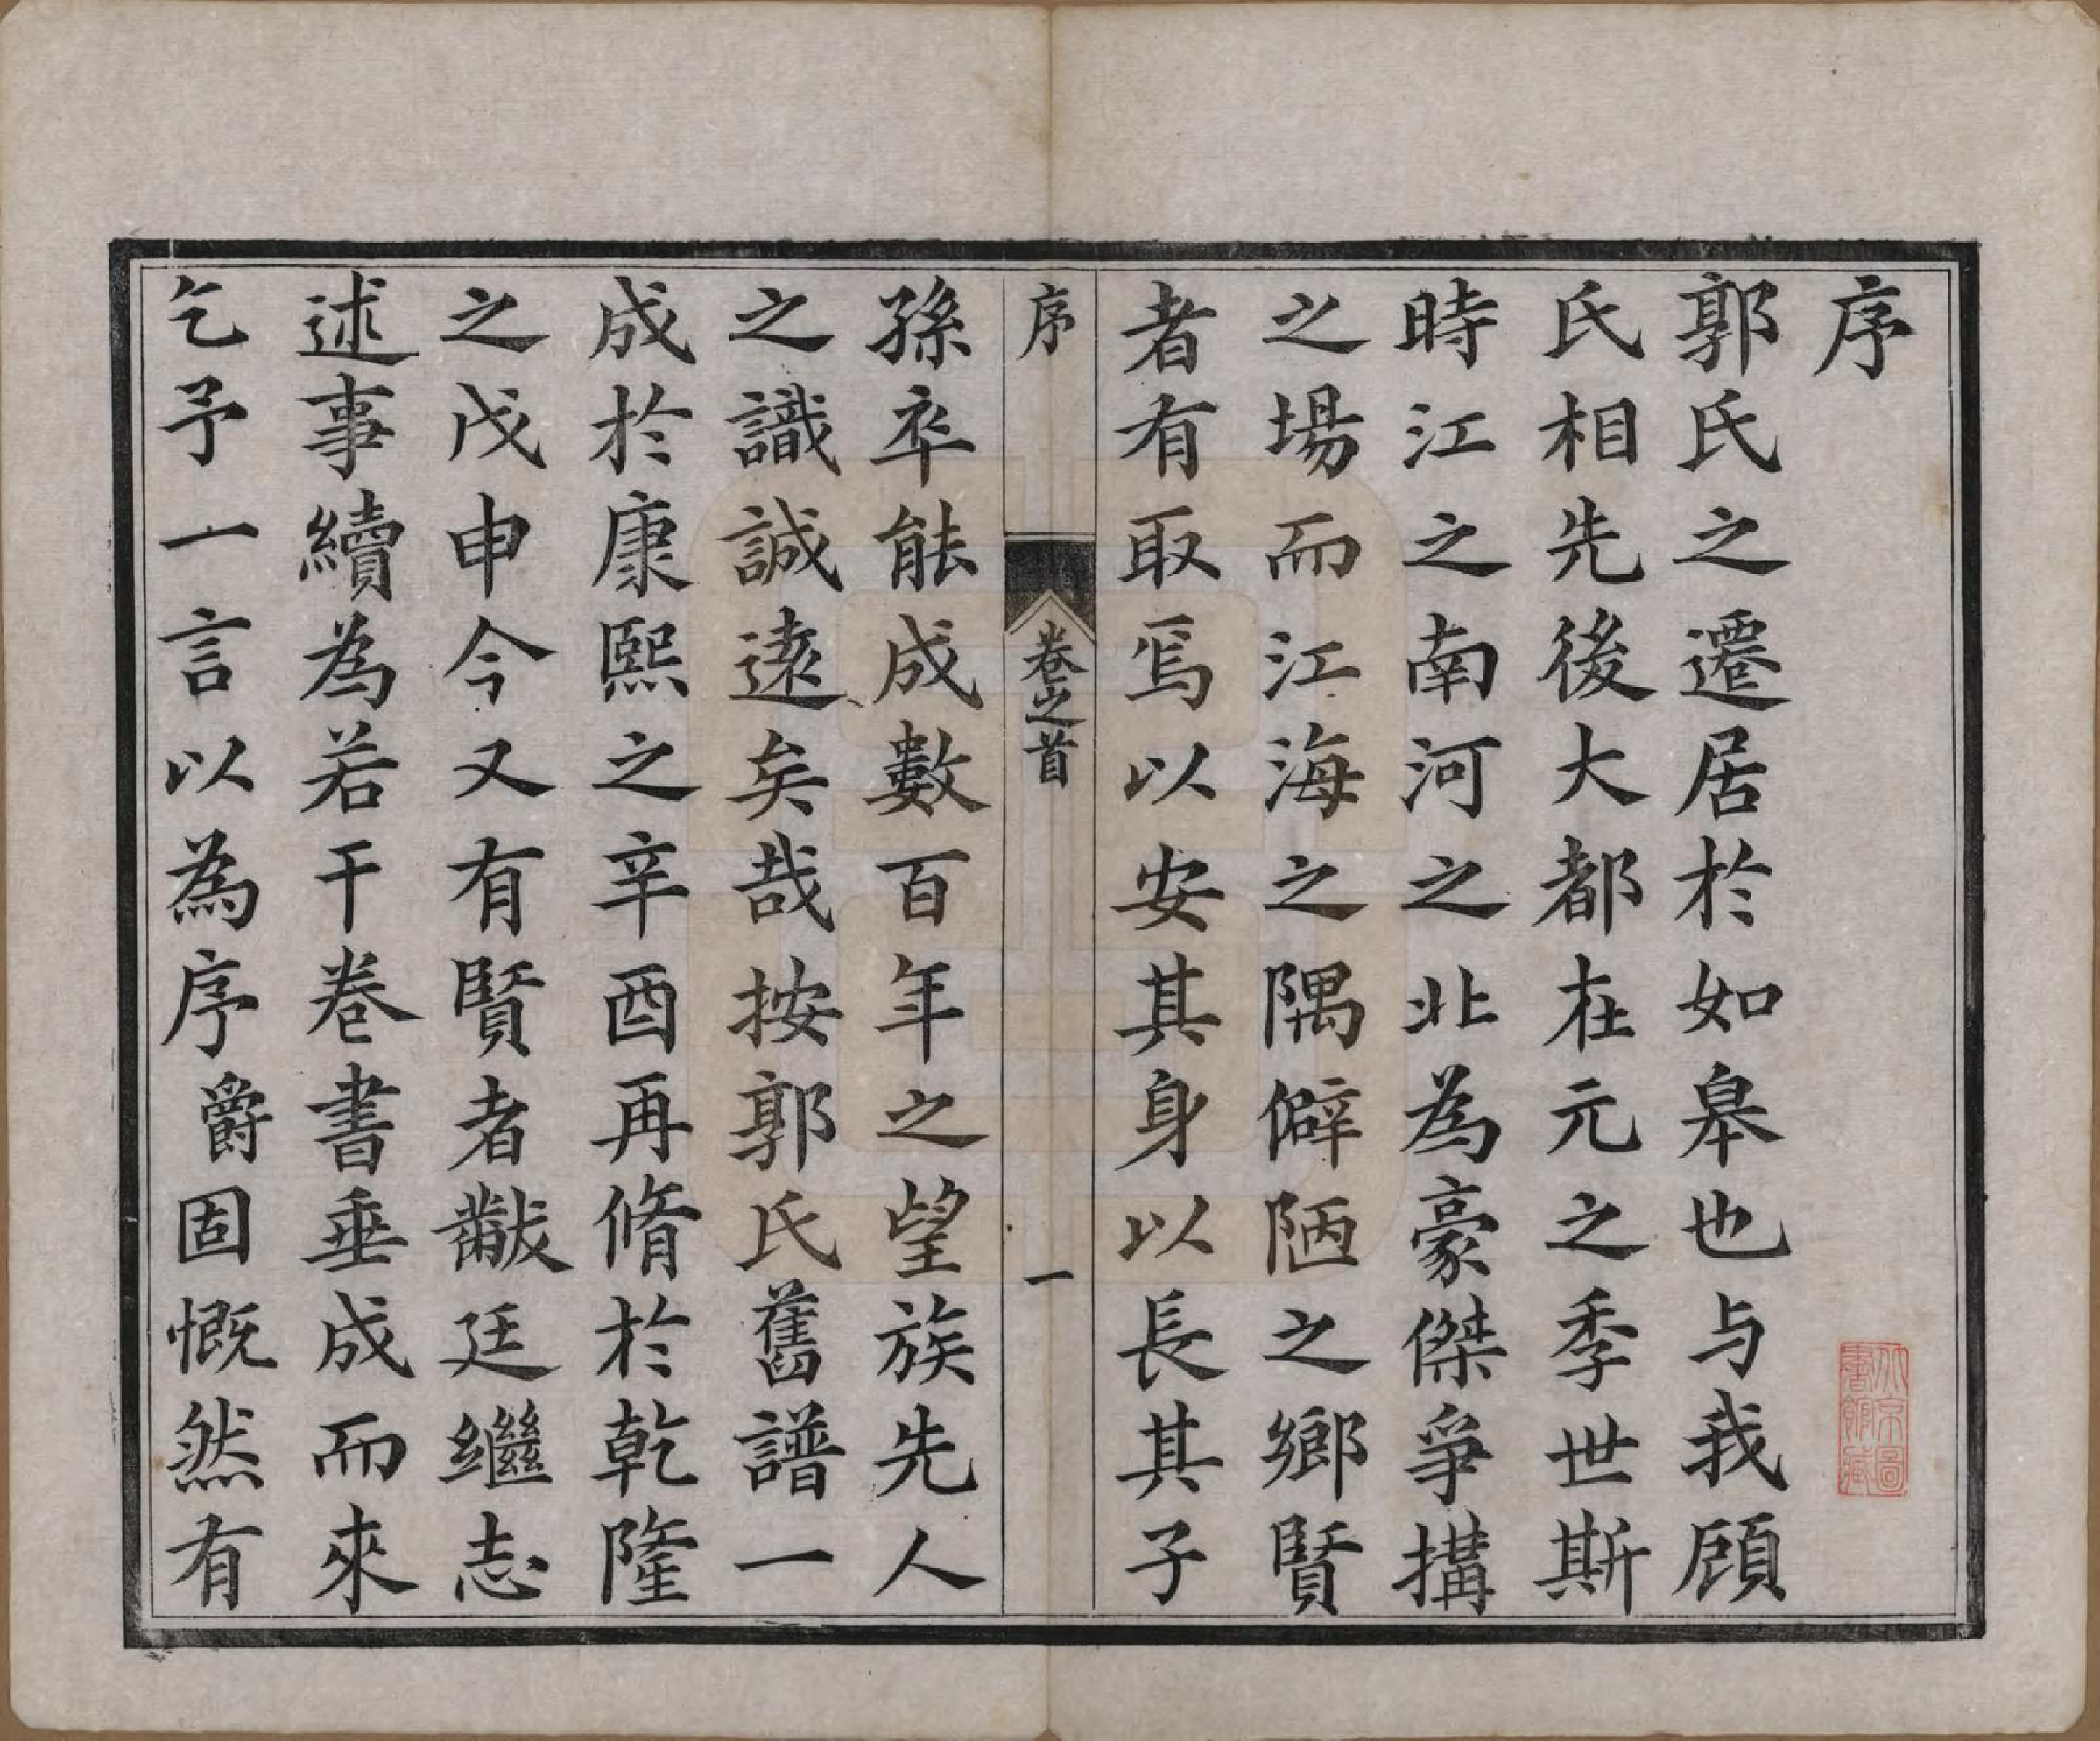 序
郭氏之遷居於如皋也与我顧
氏相先後大都在元之季世斯
時江之南河之北為豪傑爭搆
之場而江海之隅僻陋之鄉賢
者有取焉以安其身以長其子
序
卷之首
一
孫卒能成數百年之望族先人
之識誠遠矣哉按郭氏舊譜一
成於康熙之辛酉再脩於乾隆
之戊申今又有賢者黻廷繼志
述事續為若干卷書垂成而來
乞予一言以為序爵固慨然有
北京圖
書館藏